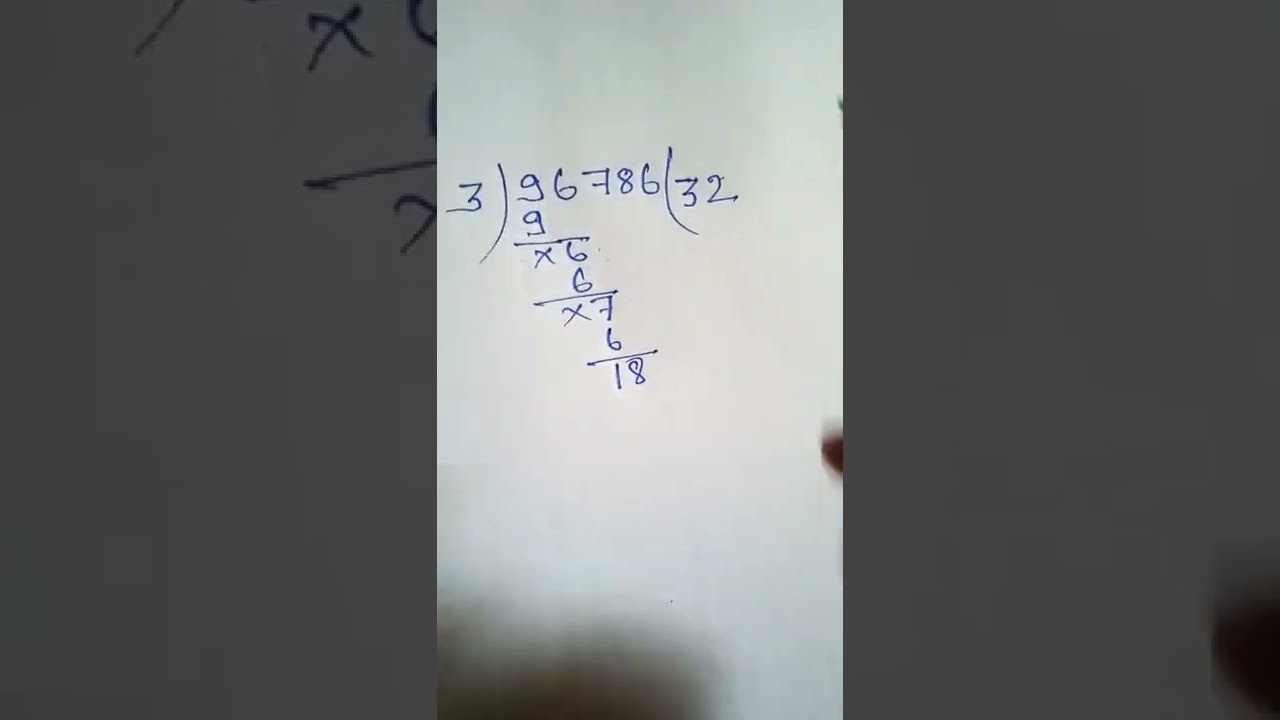 3)96786(32
9
x6
6
x7
6
18